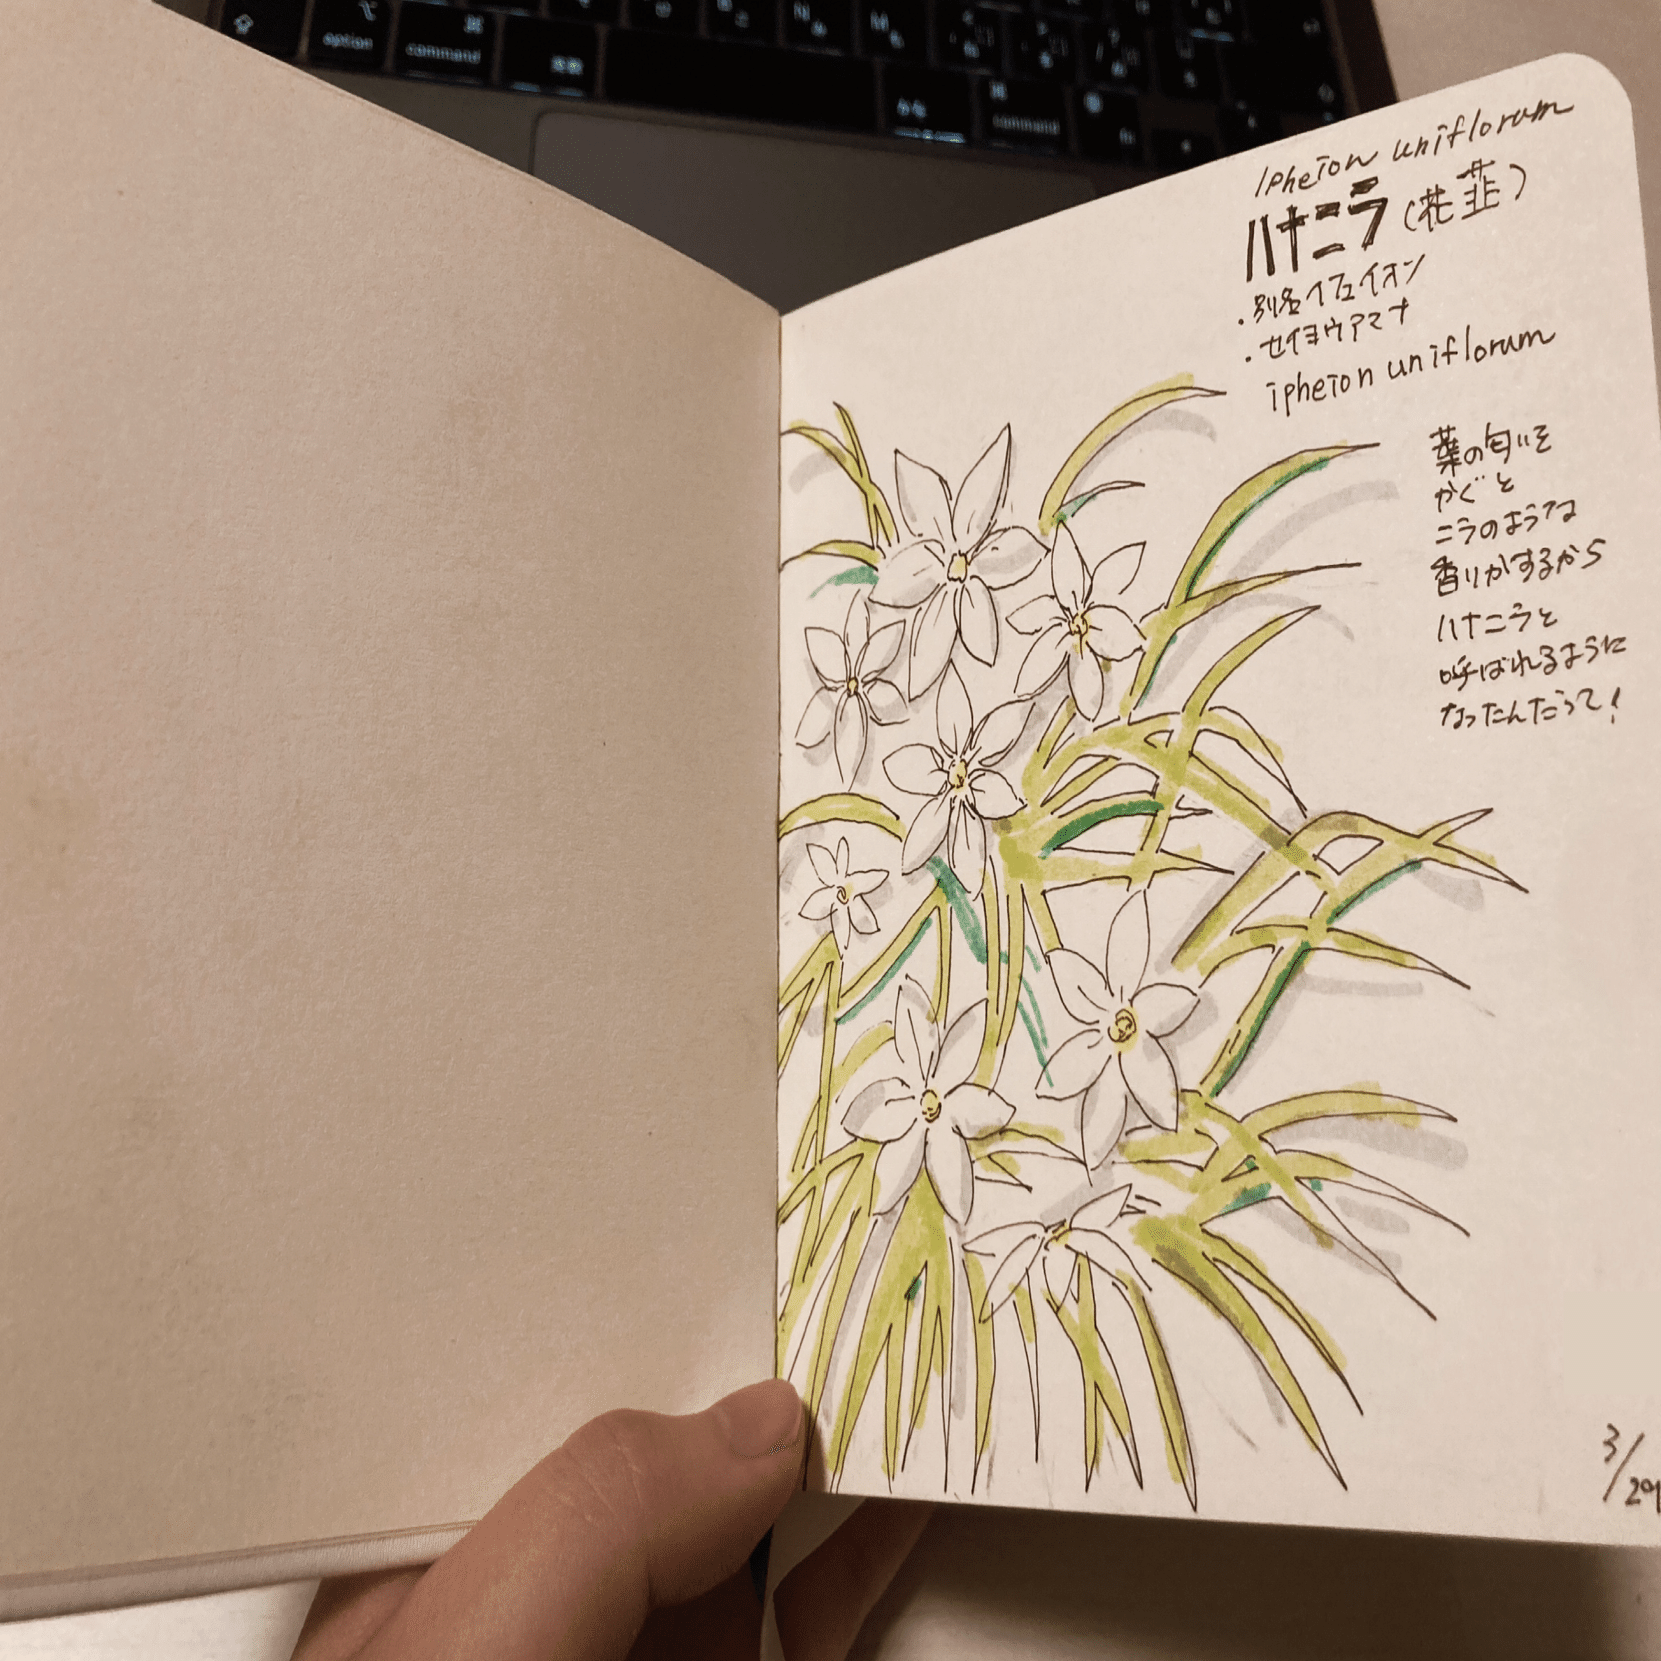 option
command
command
fn
Ipheion uniflorum
ハナニラ(花韮)
・別名イフェイオン
・セイヨウアマナ
ipheion uniflorum
葉の匂いを
かぐと
ニラのような
香りがするから
ハナニラと
呼ばれるように
なったんだって!
3/29